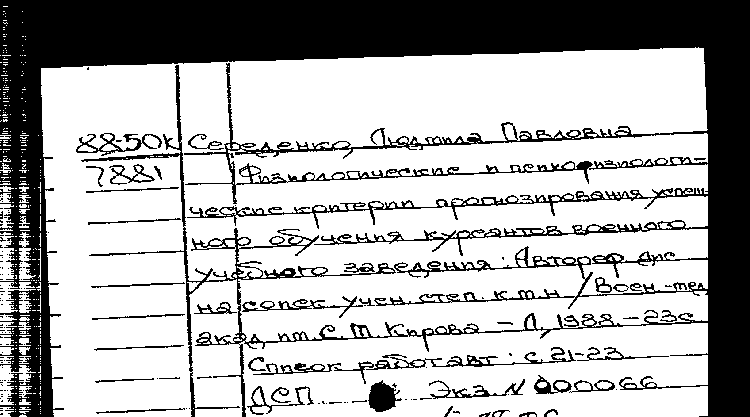 88-50к Середенко, Людмила Павловна
7881 Физиологические и психофизиологи-
ческие критерии прогнозирования успеш-
ного обучения курсантов военного
учебного заведения: Автореф дис
на соиск учен. степ. к.м.н / Воен.-мед
акад им. С. М. Кирова - Л, 1988. - 23с
Список работ авт: с 21-23.
ДСП. Экз. N 000066